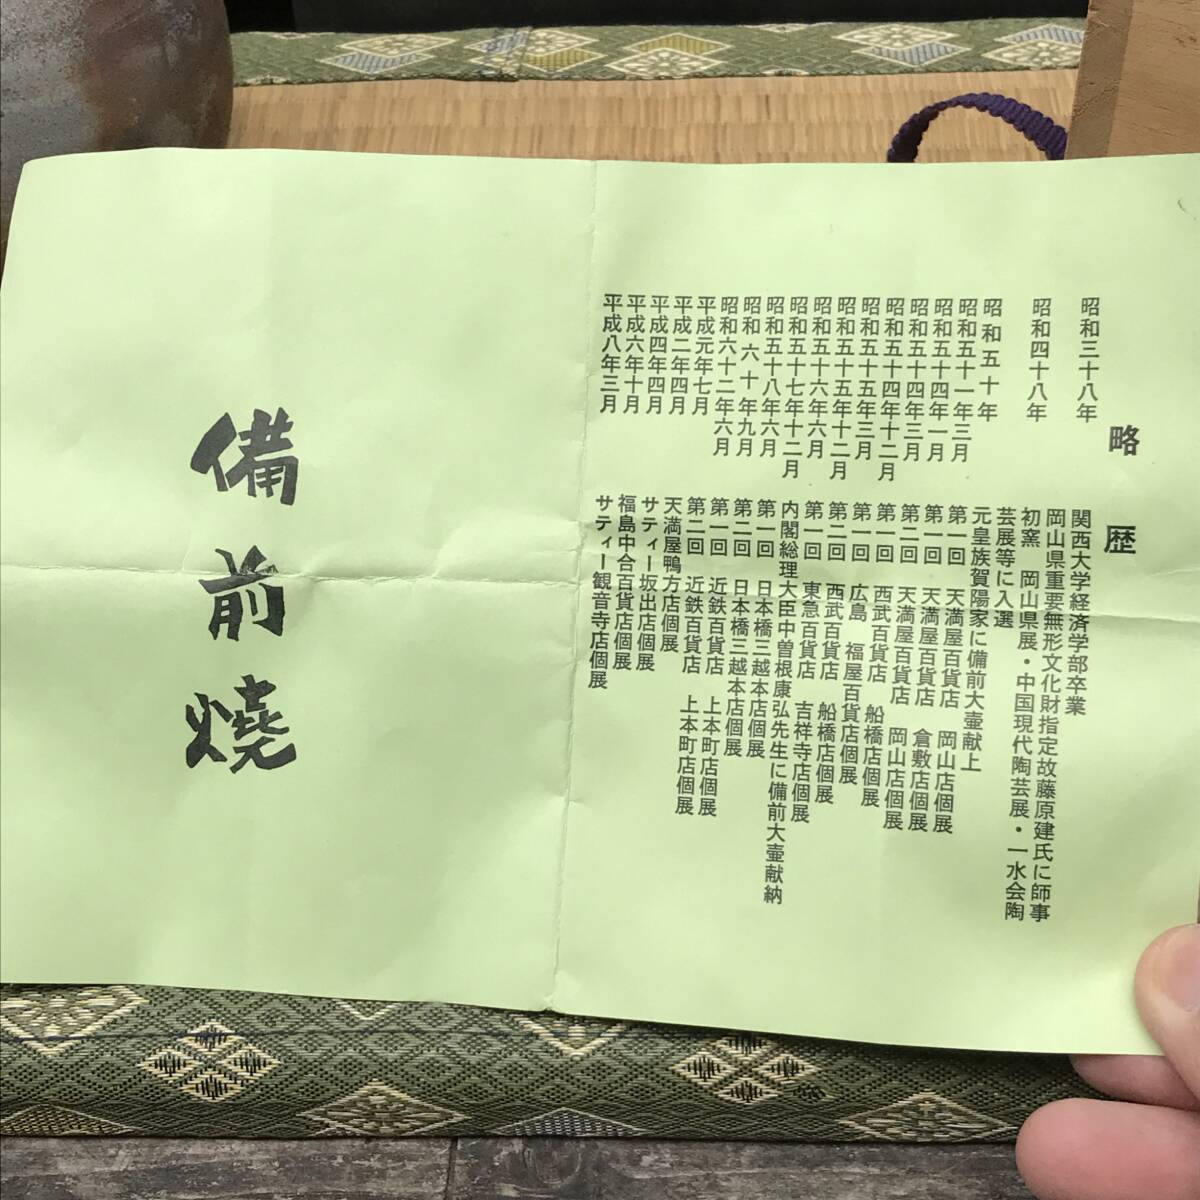 略歴
昭和三十八年 関西大学経済学部卒業
岡山県重要無形文化財指定故藤原建氏に師事
昭和四十八年 初窯 岡山県展・中国現代陶芸展・一水会陶
芸展等に入選
昭和五十年 元皇族賀陽家に備前大壷献上
昭和五十一年三月 第一回 天満屋百貨店 岡山店個展
昭和五十四年一月 第一回 天満屋百貨店 倉敷店個展
昭和五十四年三月 第二回 天満屋百貨店 岡山店個展
昭和五十四年十二月 第一回 西武百貨店 船橋店個展
昭和五十五年三月 第一回 広島 福屋百貨店個展
昭和五十五年十二月 第二回 西武百貨店 船橋店個展
昭和五十六年六月 第一回 東急百貨店 吉祥寺店個展
昭和五十七年十二月 内閣総理大臣中曽根康弘先生に備前大壷献納
昭和五十八年六月 第一回 日本橋三越本店個展
昭和六十年九月 第二回 日本橋三越本店個展
昭和六十二年六月 第一回 近鉄百貨店 上本町店個展
平成元年七月 第二回 近鉄百貨店 上本町店個展
平成二年四月 天満屋鴨方店個展
平成四年四月 サティー坂出店個展
平成六年十月 福島中合百貨店個展
平成八年三月 サティー観音寺店個展
備前燒